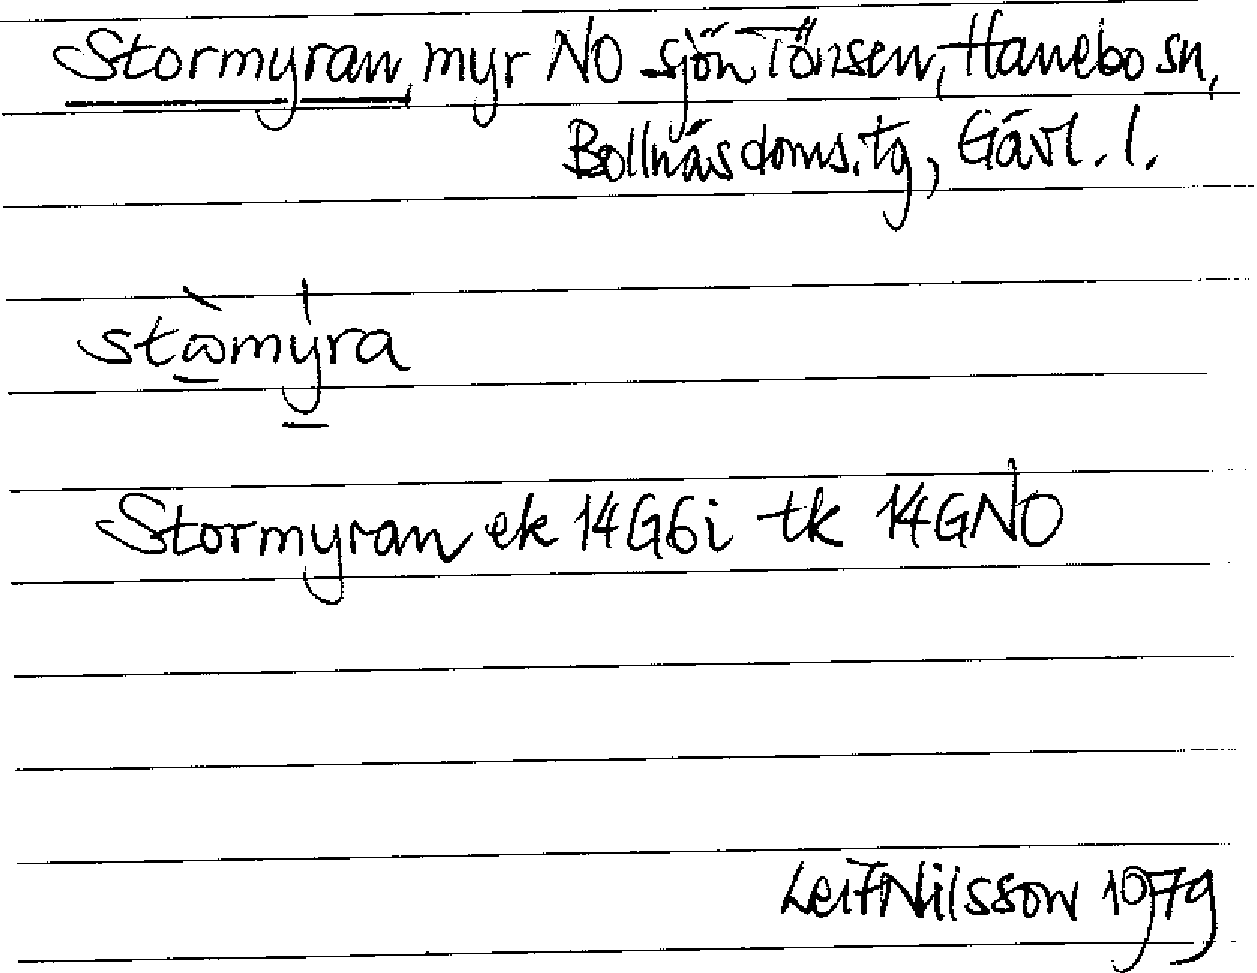 Stormyran, myr NO sjön Tönsen, Hanebo sn,
Bollnäs doms.tg, Gävl. l.
stὼ̲my̲̍ra
Stormyran ek 14G6i tk 14GNO
Leif Nilsson 1979